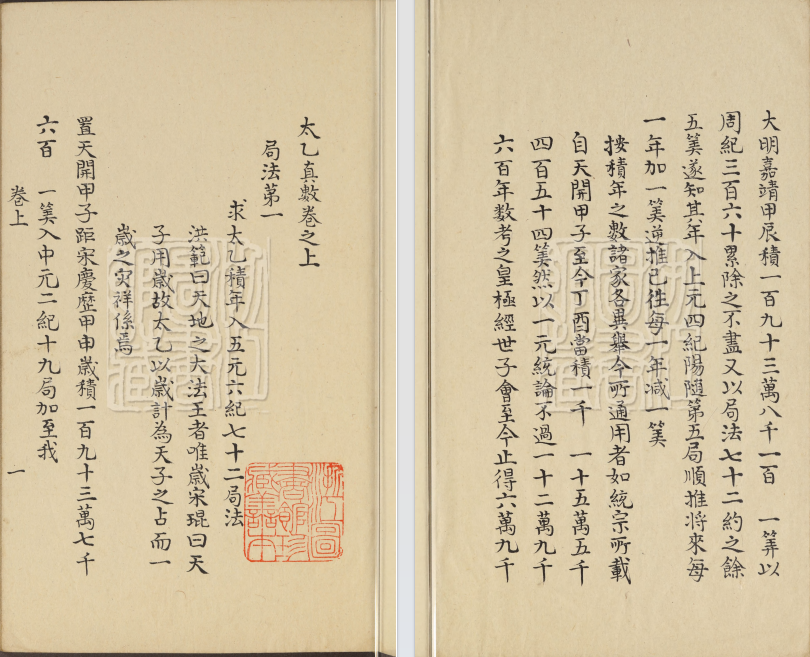 太乙真數卷之上
局法第一
求太乙積年入五元六紀七十二局法
洪範曰天地之大法王者唯歲宋琨曰天
子用歲故太乙以歲計為天子之占而一
歲之灾祥係焉
置天開甲子距宋慶歷甲申歲積一百九十三萬七千
六百　一筭入中元二紀十九局加至我
卷上　一
浙江圖
書館珍
藏善本
大明嘉靖甲辰積一百九十三萬八千一百　一筭以
周紀三百六十累除之不盡又以局法七十二約之餘
五筭遂知其年入上元四紀陽隨第五局順推将來每
一年加一筭逆推已徃每一年减一筭
按積年之數諸家各異舉今所通用者如統宗所載
自天開甲子至今丁酉當積一千　一十五萬五千
四百五十四筭然以一元統論不過一十二萬九千
六百年数考之皇極經世子會至今止得六萬九千